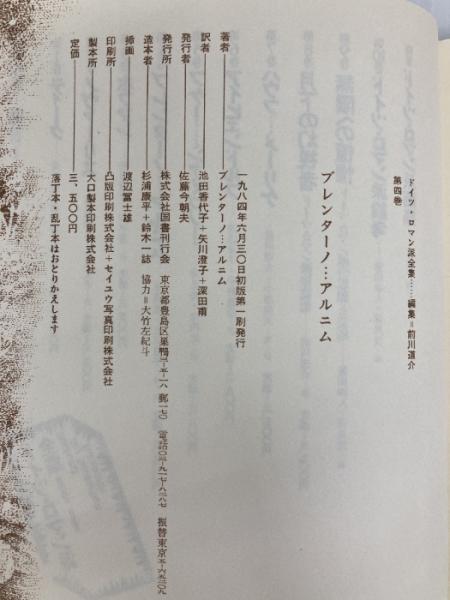 ドイツ・ロマン派全集……編集=前川道介
第四巻
ブレンターノ…アルニム
一九八四年六月三〇日初版第一刷発行
著者 ブレンターノ…アルニム
訳者 池田香代子+矢川澄子+深田甫
発行者 佐藤今朝夫
発行所 株式会社国書刊行会 東京都豊島区巣鴨
造本者 杉浦康平+鈴木一誌 協力=大竹左紀斗
挿画 渡辺冨士雄
印刷所 凸版印刷株式会社+セイユウ写真印刷株式会社
製本所 大口製本印刷株式会社
定価 三、五〇〇円
落丁本・乱丁本はおとりかえします